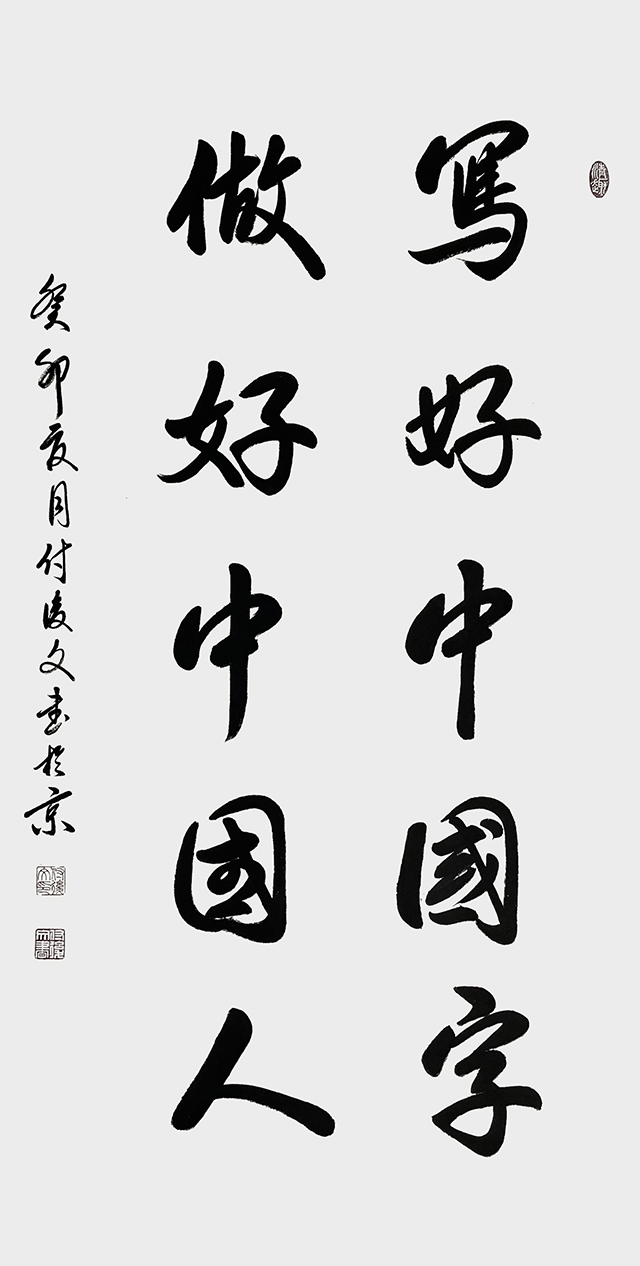 寫好中國字
做好中國人
癸卯夏月付俊文書於京